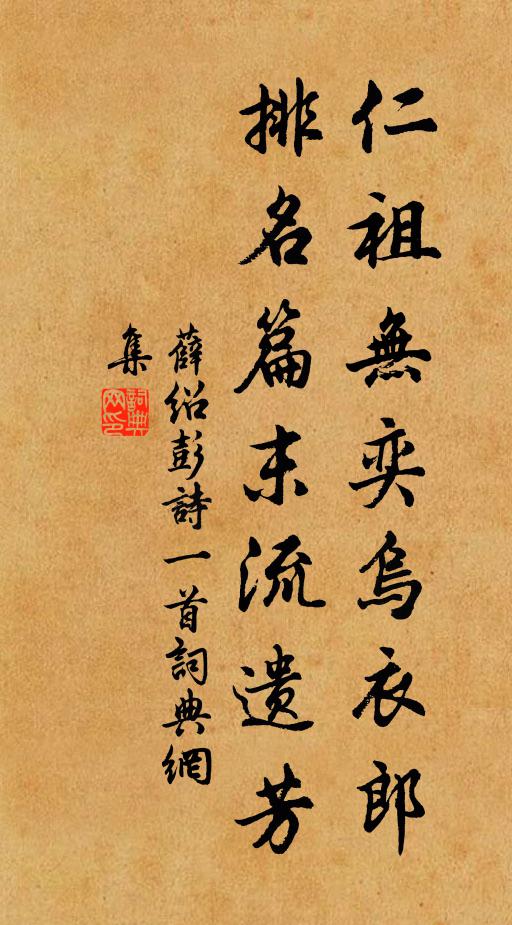 仁祖無奕烏衣郎
排名篇末流遗芳
薛绍彭詩一首詞典網
集
詞典
网印